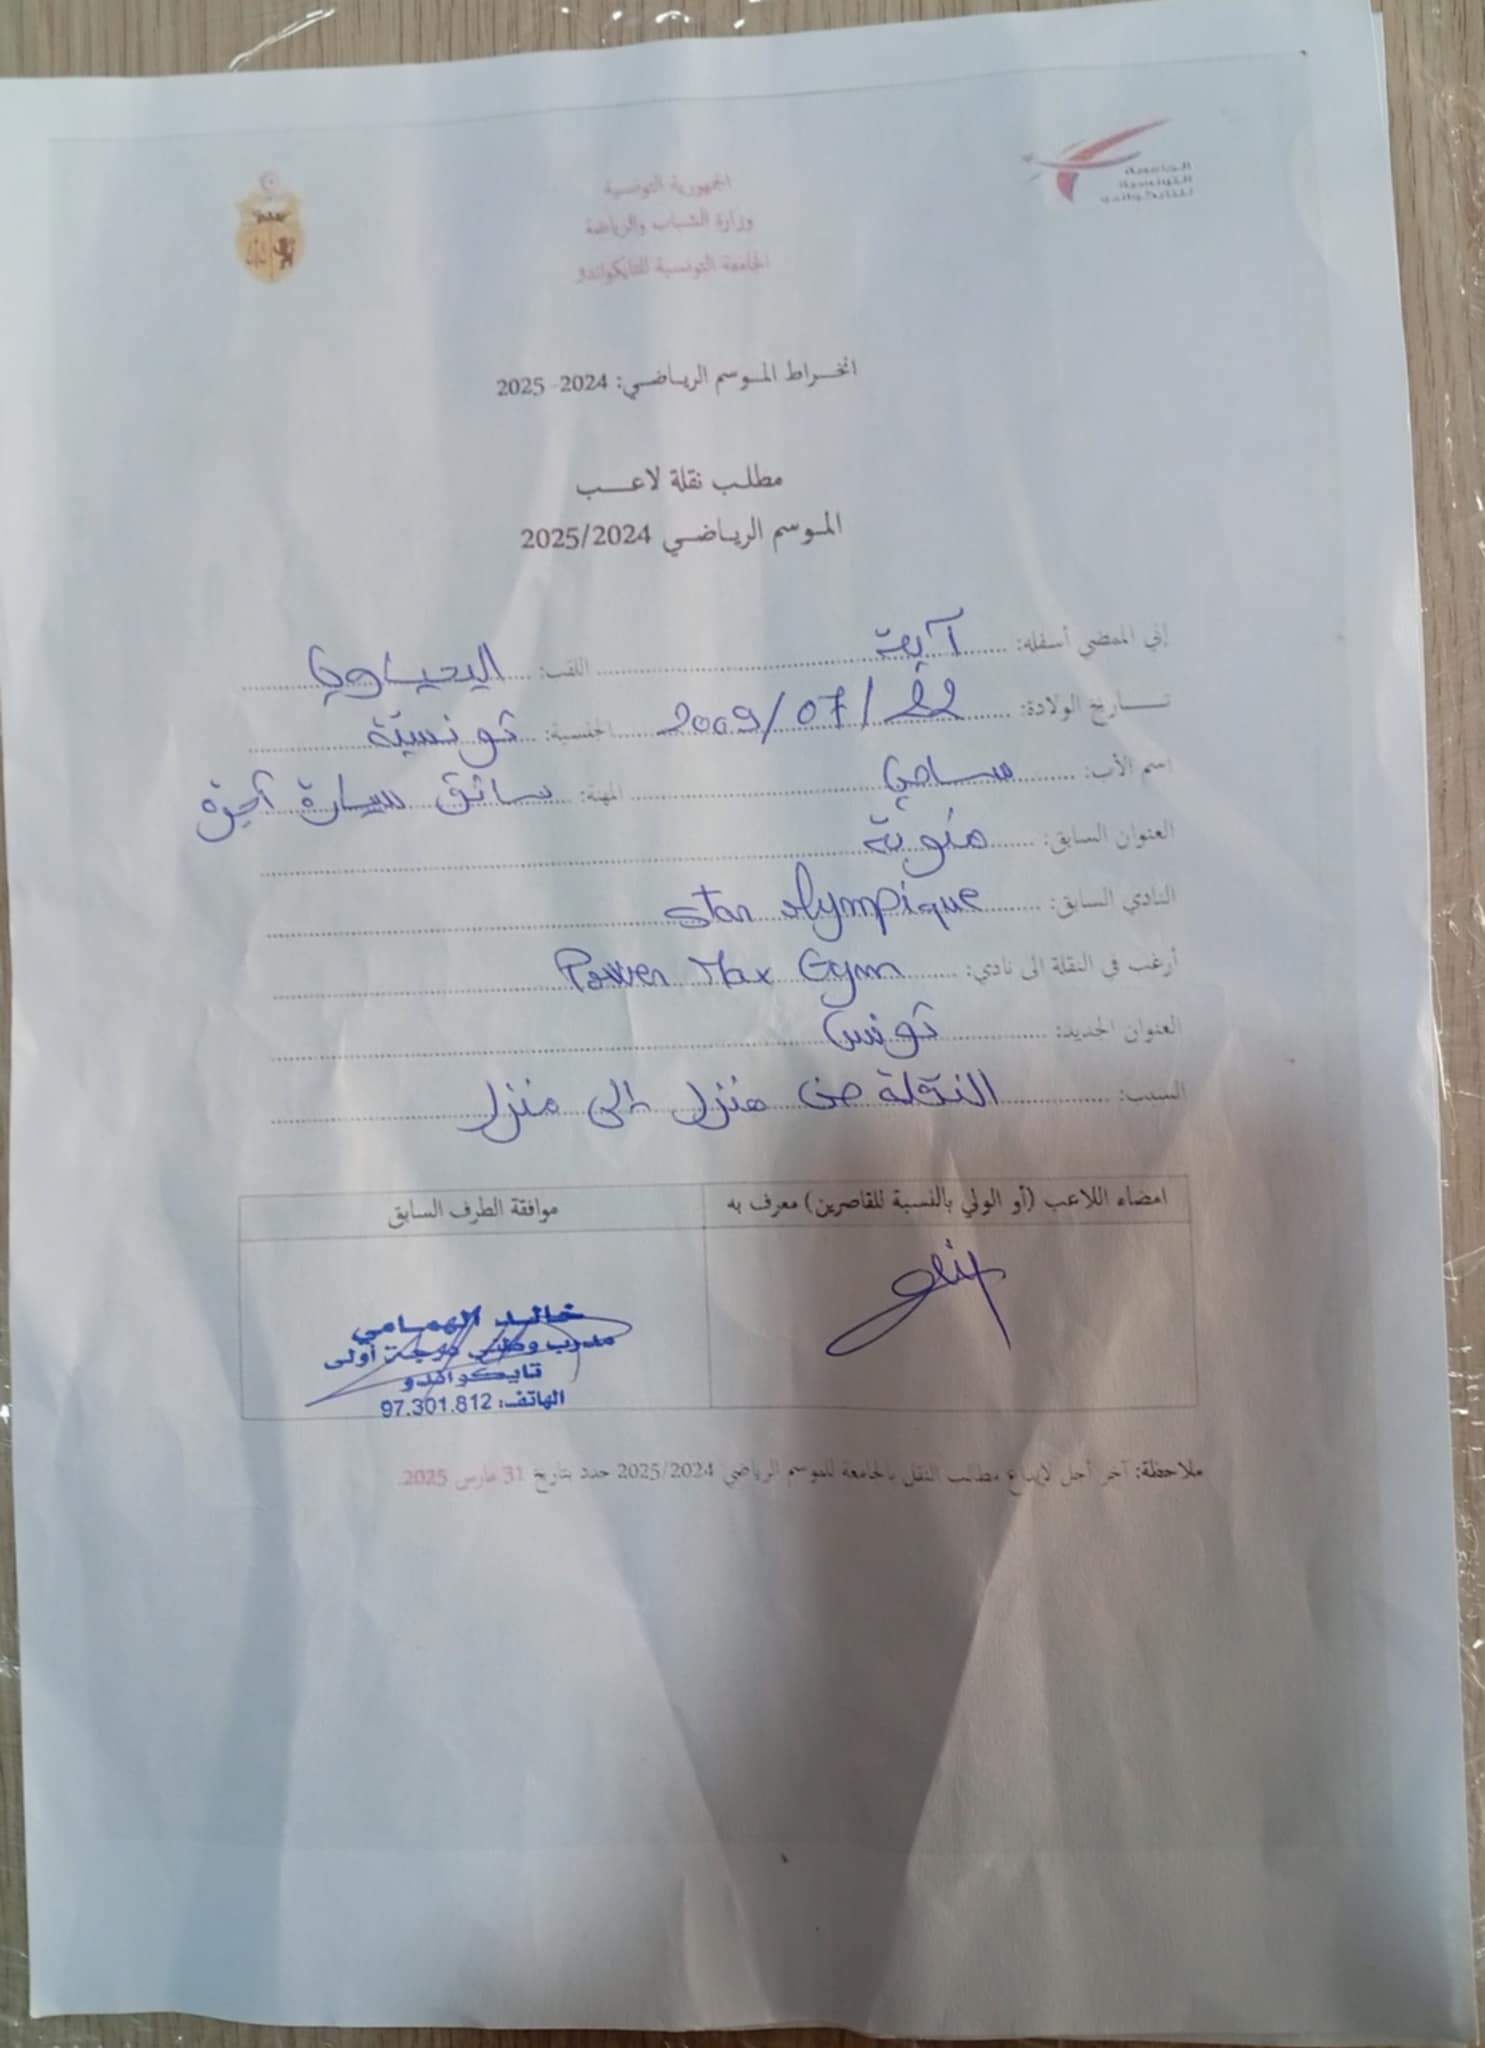 الجامعة
التونسية
للتايكواندو
الجمهورية التونسية
وزارة الشباب والرياضة
الجامعة التونسية للتايكواندو
انخراط الموسم الرياضي: 2024- 2025
مطلب نقلة لاعب
الموسم الرياضي 2025/2024
إني الممضي أسفله: آية اللقب: اليحياوي
تاريخ الولادة: 22/07/2009 الجنسية: تونسية
اسم الأب: سامي المهنة: سائق سيارة أجرة
العنوان السابق: منوبة
النادي السابق: Star olympique
أرغب في النقلة الى نادي: Power Max Gym
العنوان الجديد: تونس
السبب: النقلة من منزل إلى منزل
امضاء اللاعب (أو الولي بالنسبة للقاصرين) معرف به
موافقة الطرف السابق
خالد الهمامي
مدرب وطني درجة أولى
تايكواندو
الهاتف: 97.301.812
ملاحظة: آخر أجل لإيداع مطالب النقل بالجامعة للموسم الرياضي 2025/2024 حدد بتاريخ 31 مارس 2025.